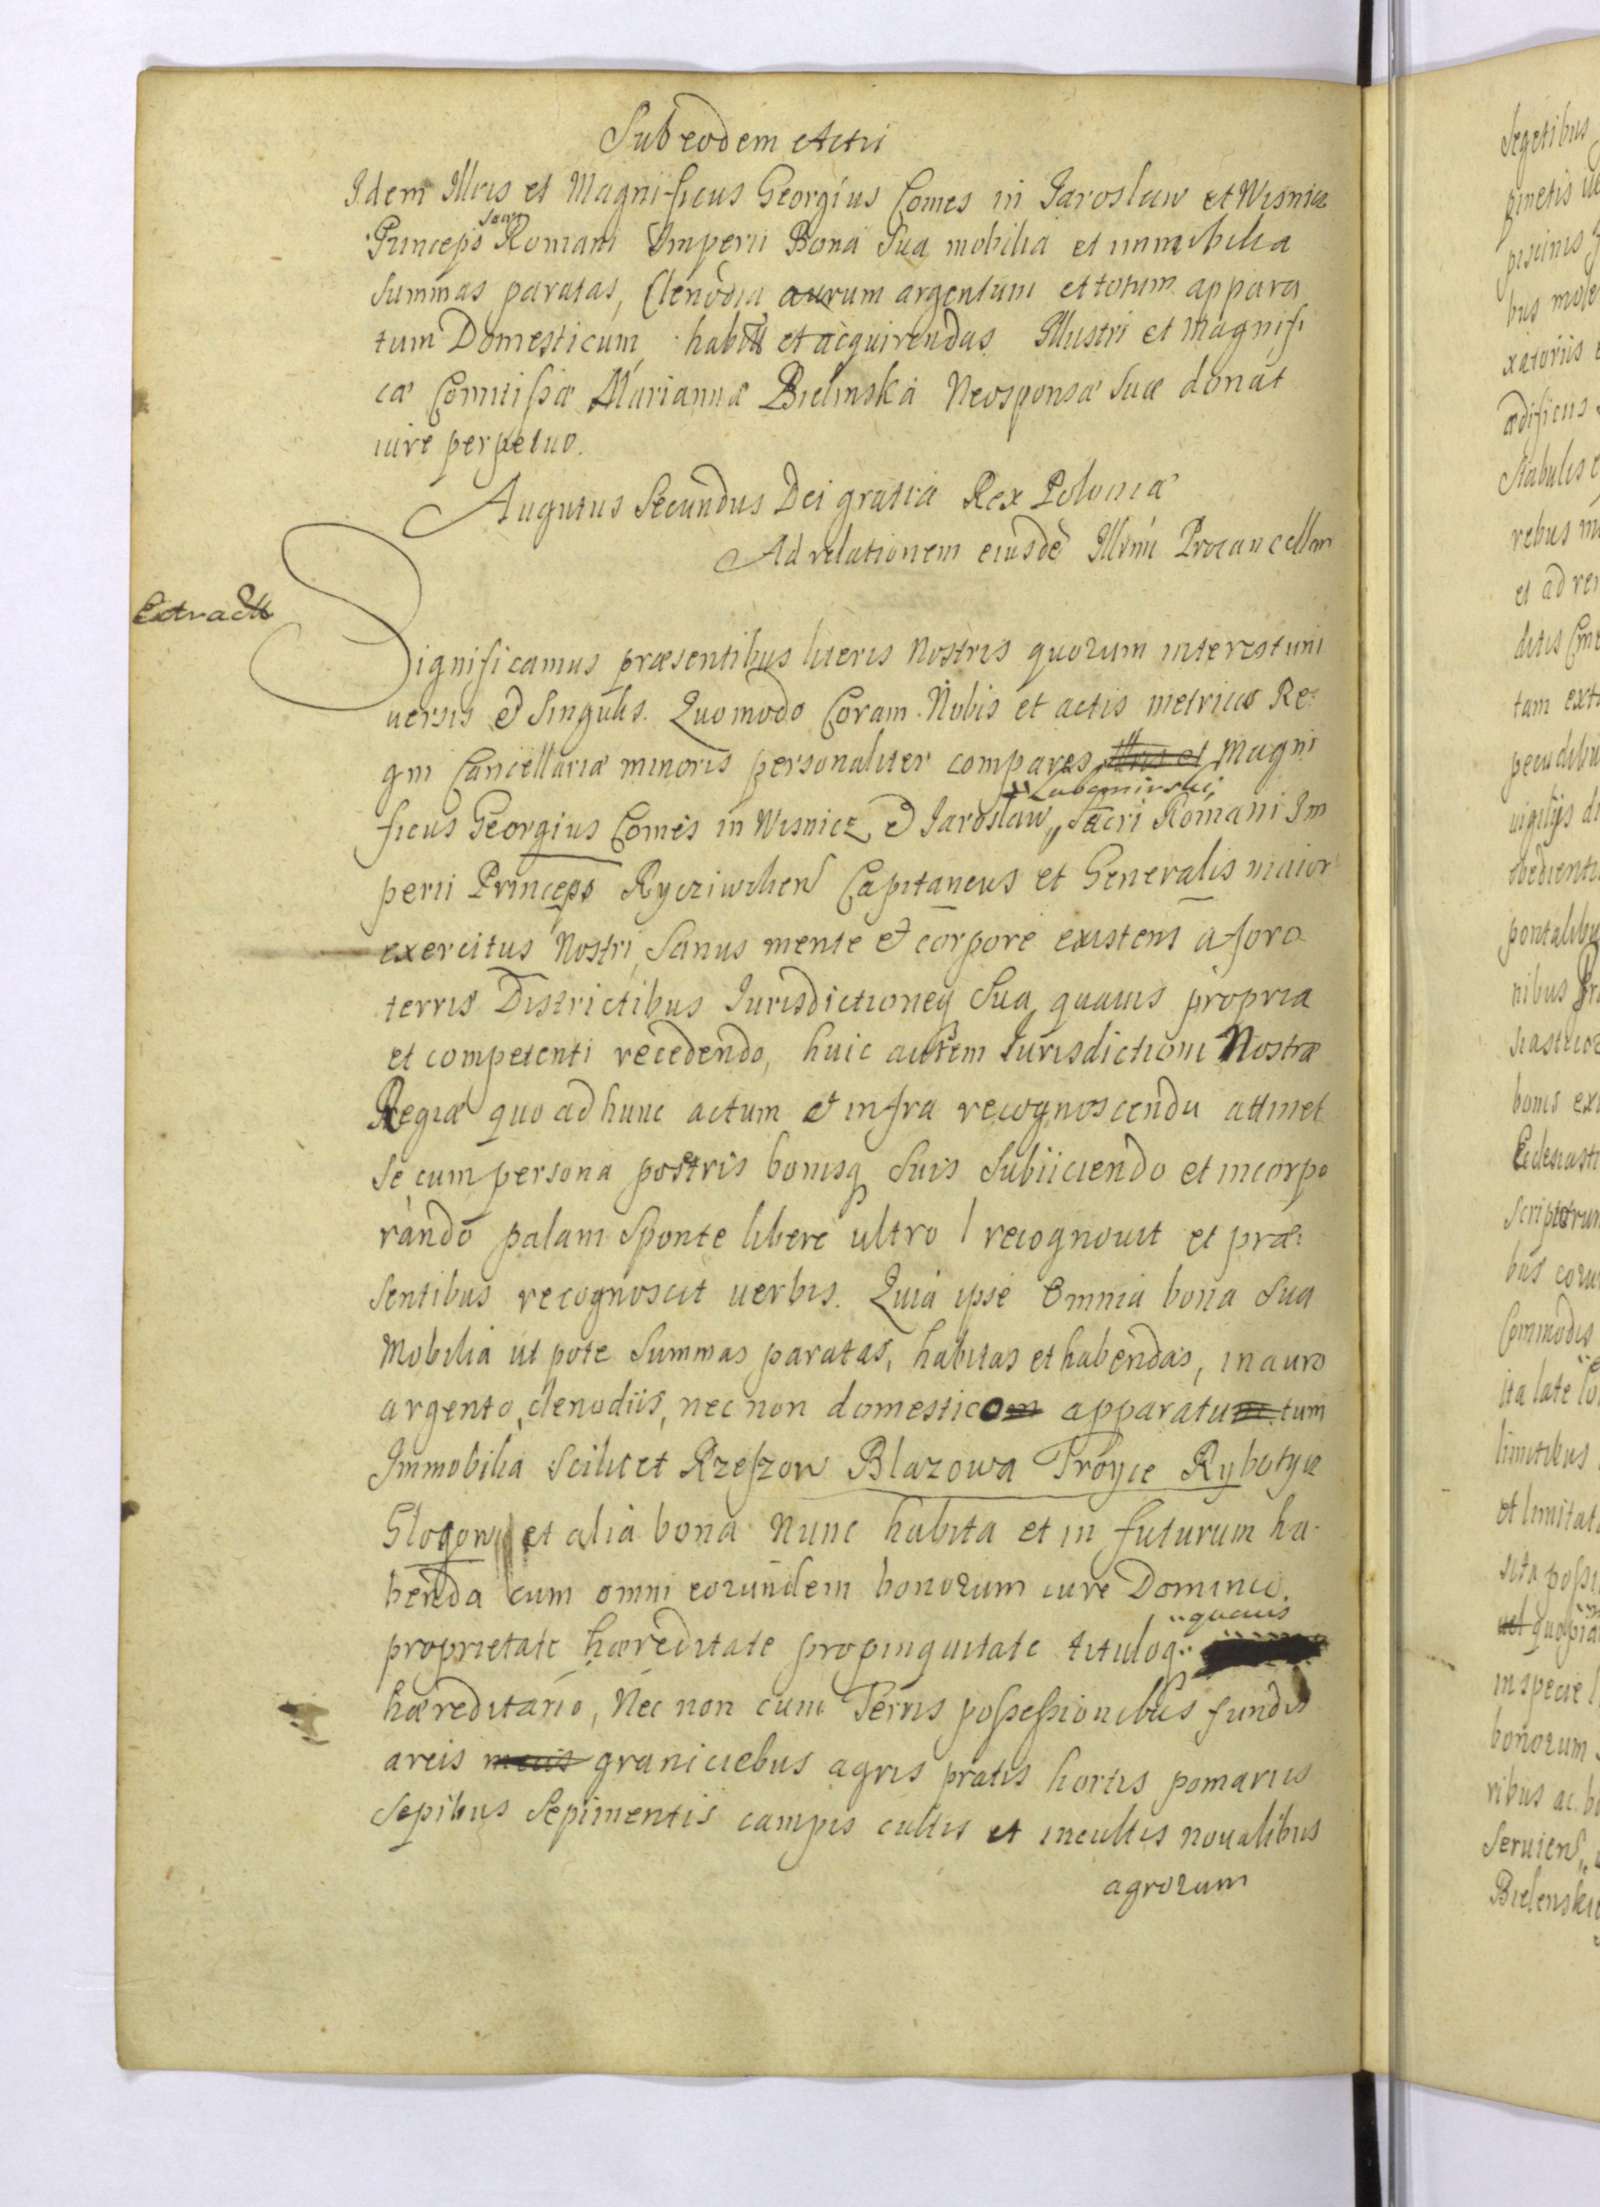 Sub eodem Actu
Idem Illris et Magnificus Georgius Comes in Jaroslaw et Wisnicz
Princeps Sacri Romani Imperii Bona Sua mobilia et immobilia
Summas paratas, Clenodia aurum argentum et totum appara
tum Domesticum, habit et acquirendas Illustri et Magnifi
cæ Comitissæ Mariannæ Bielinska Neosponsæ Suæ donat
iure perpetuo.
Augutus Secundus Dei gratia Rex Poloniæ
Ad relationem eiusdē Illmi Procancellar
Extractt
Significamus præsentibus literis Nostris quorum interest uni
versis et Singulis. Quomodo Coram Nobis et actis metrices Re
gni Cancellariæ minoris personaliter compares Illris et Magni
ficus Georgius Comes in Wisnicz et Jaroslaw Lubomirski Sacri Romani Im
perii Princeps Capitaneus et Generalis maior
exercitus Nostri, Sanus mente et corpore existens a foro
terris Districtibus Jurisdictioneq Sua quavis propria
et competenti recedendo, huic autem Jurisdictioni Nostræ
Regiæ quo ad hunc actum et infra recognoscendu attinet
Se cum persona postris bonisq Suis Subiiciendo et incorpo
rando palam Sponte libere ultro recognovit et præ
sentibus recognoscit verbis. Quia ipse Omnia bona Sua
Mobilia ut pote Summas paratas, habitas et habendas, in auro
argento, clenodiis, nec non domesticom apparatum tum
Immobilia Scilicet Rzeszow Blazowa Troyce Rybotyce
Glogow et alia bona Nunc habita et in futurum ha
benda cum omni eorundem bonorum iure Dominio
proprietate hæreditate propinquitate tituloq quavis
hæreditario, Nec non cum Terris possessionibus fundis
areis meis graniciebus agris pratis hortis pomariis
Sepibus Sepimentis campis cultis et incultis novalibus
agrorum
Segetibus
pinetis
piscinis
xatoriis
ædificiis
Stabulis
rebus
et ad
tam
nibus
bonis
Commodis
ita late
limitibus
et limitat
vel
in specie
bonorum
ribus ac